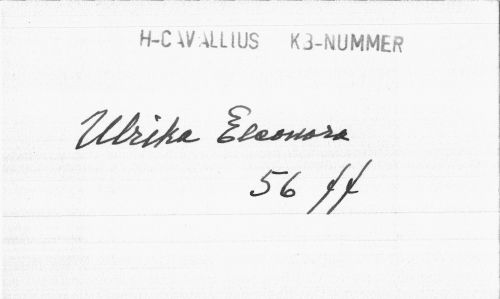 H-CAVALLIUS KB-NUMMER
Ulrika Eleonora
56 ff